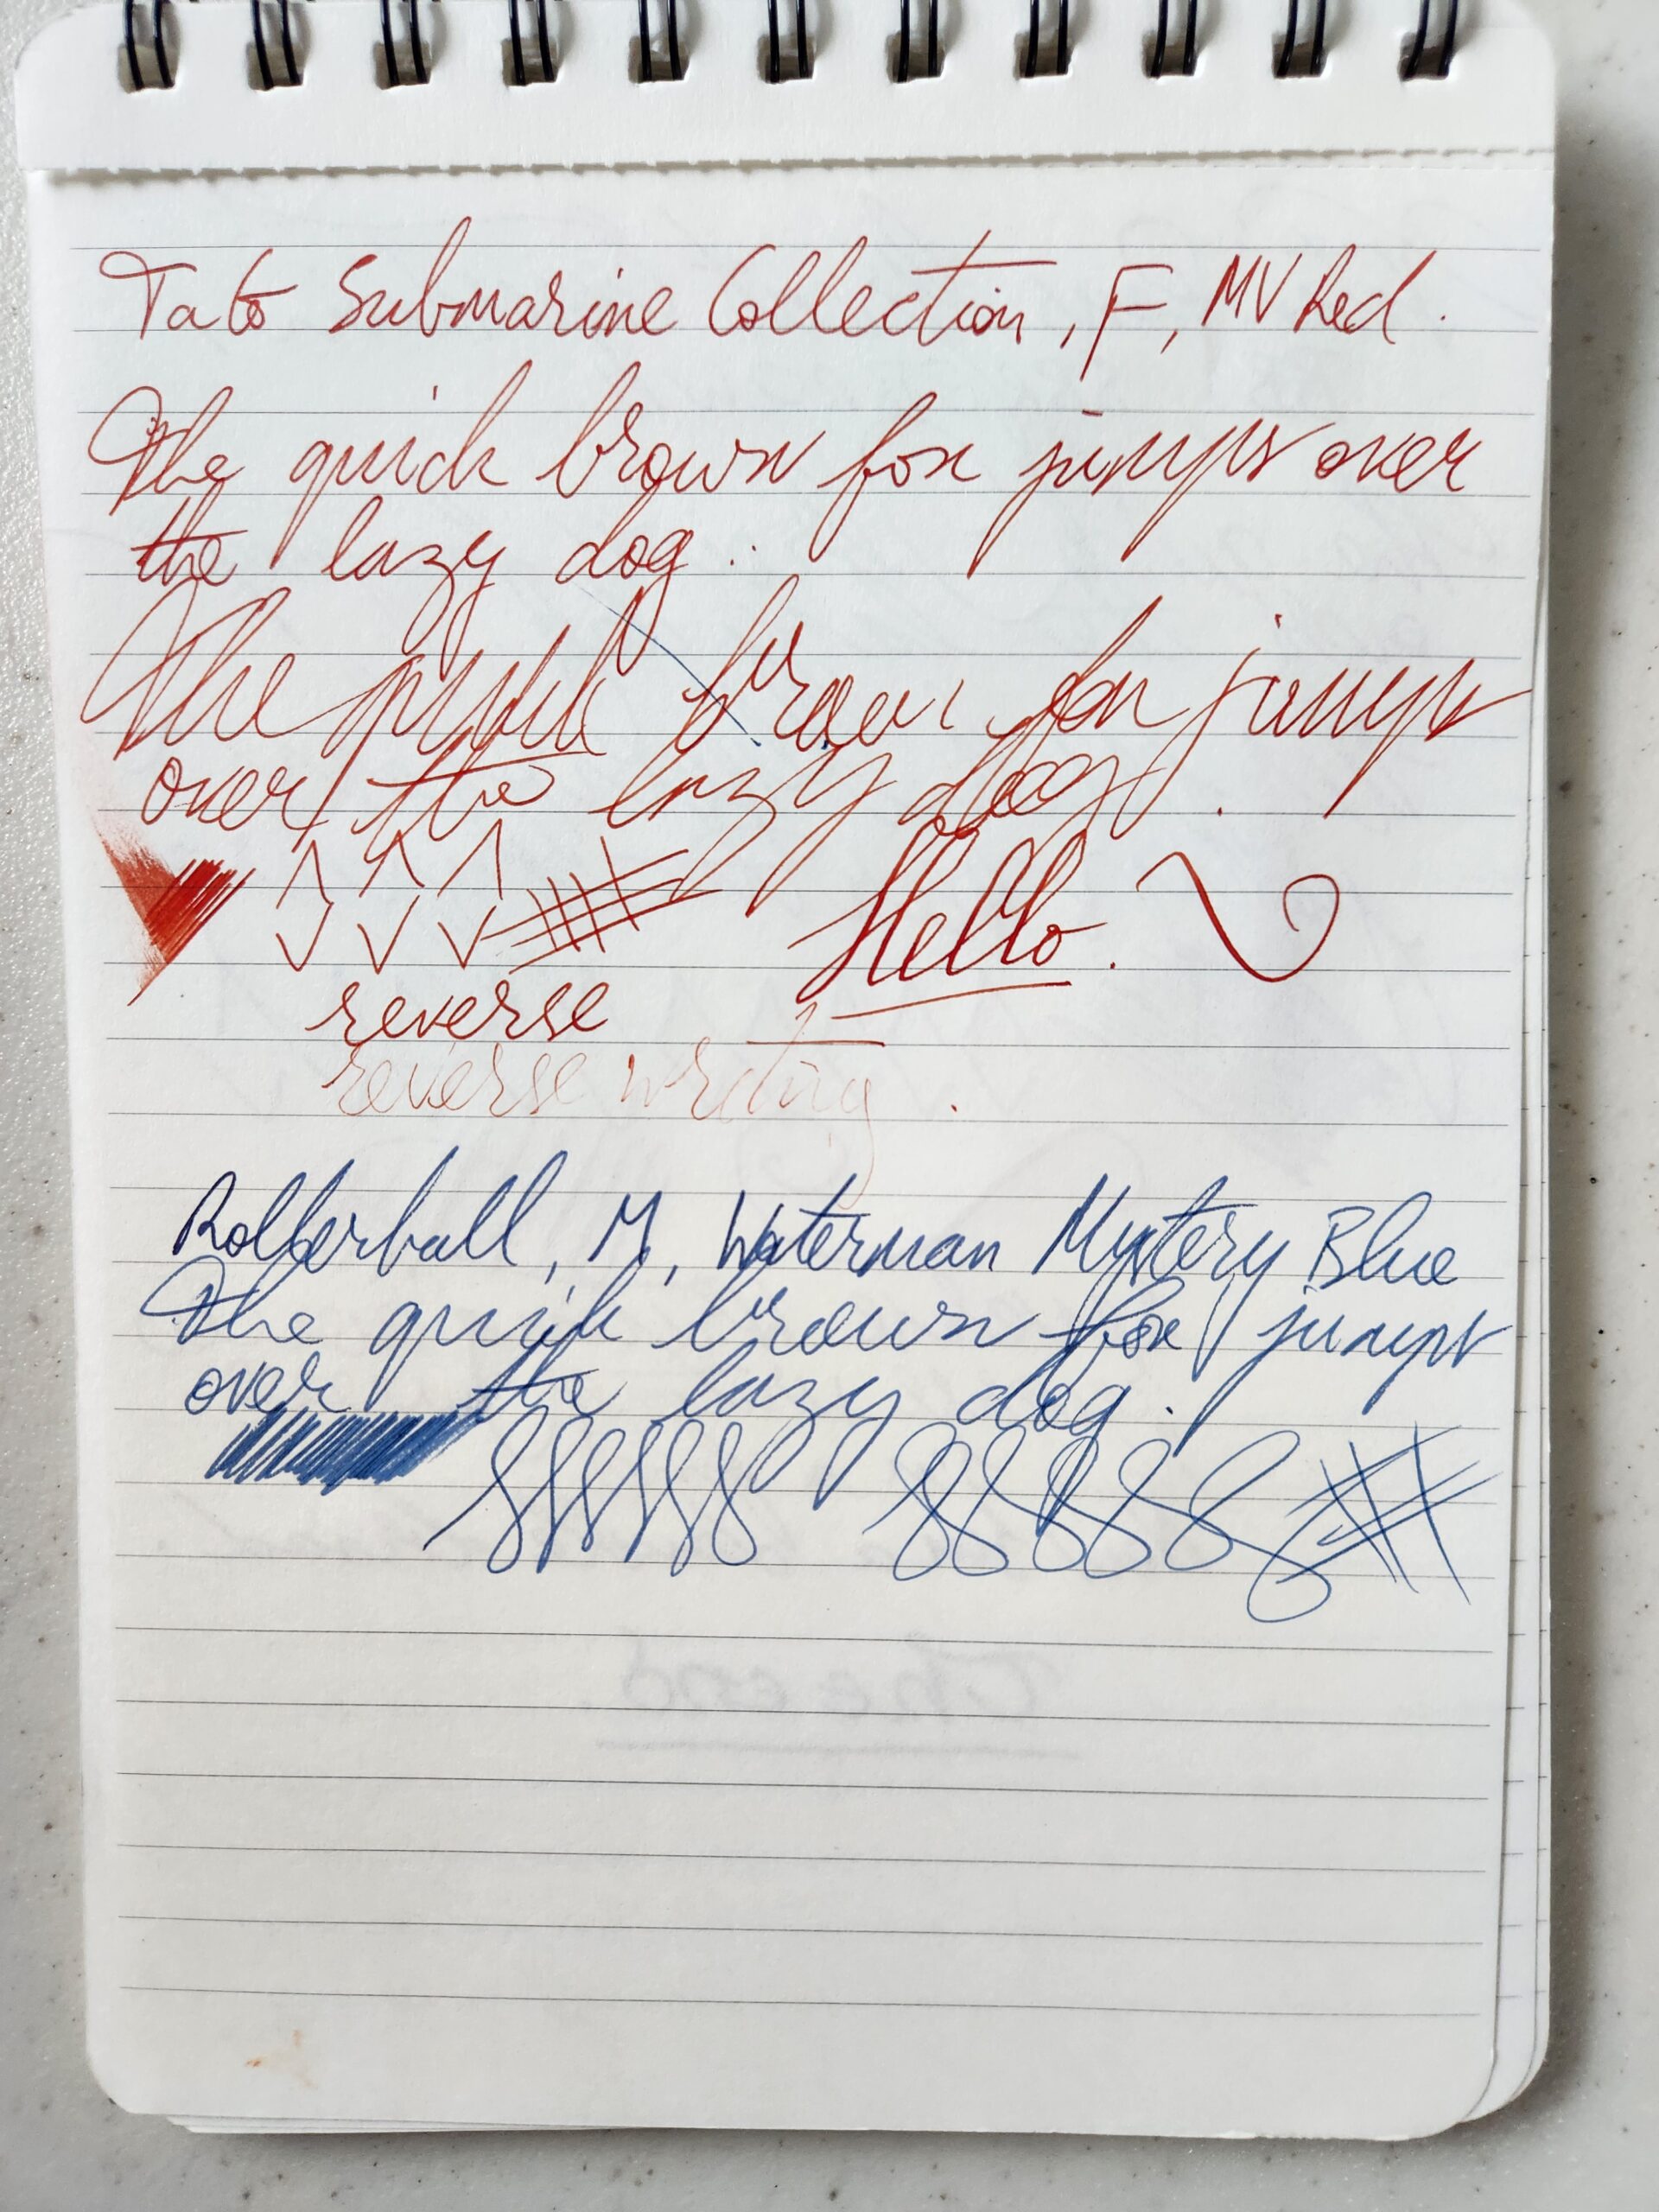 Tato Submarine Collection, F, MV Red.
The quick brown fox jumps over
the lazy dog.
The quick brown fox jumps
over the lazy dog.
Hello.
reverse
reverse writing.
Rollerball, M, Waterman Mystery Blue
The quick brown fox jumps
over the lazy dog.
The end